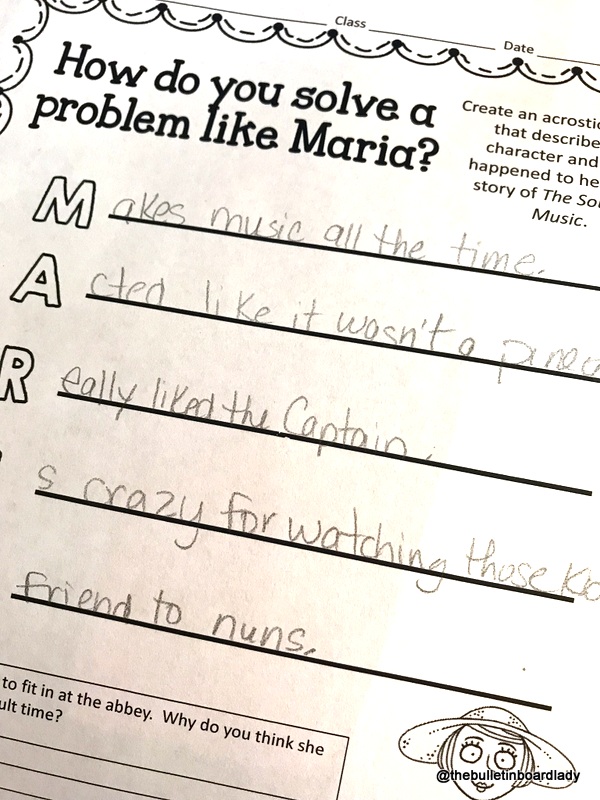 Class Date
How do you solve a
problem like Maria?
Create an acrostic
that describe
character and
happened to he
story of The So
Music.
Makes music all the time.
Acted like it wasn't a
Really liked the Captain.
s crazy for watching those
friend to nuns.
to fit in at the abbey. Why do you think she
ult time?
@thebulletinboardlady